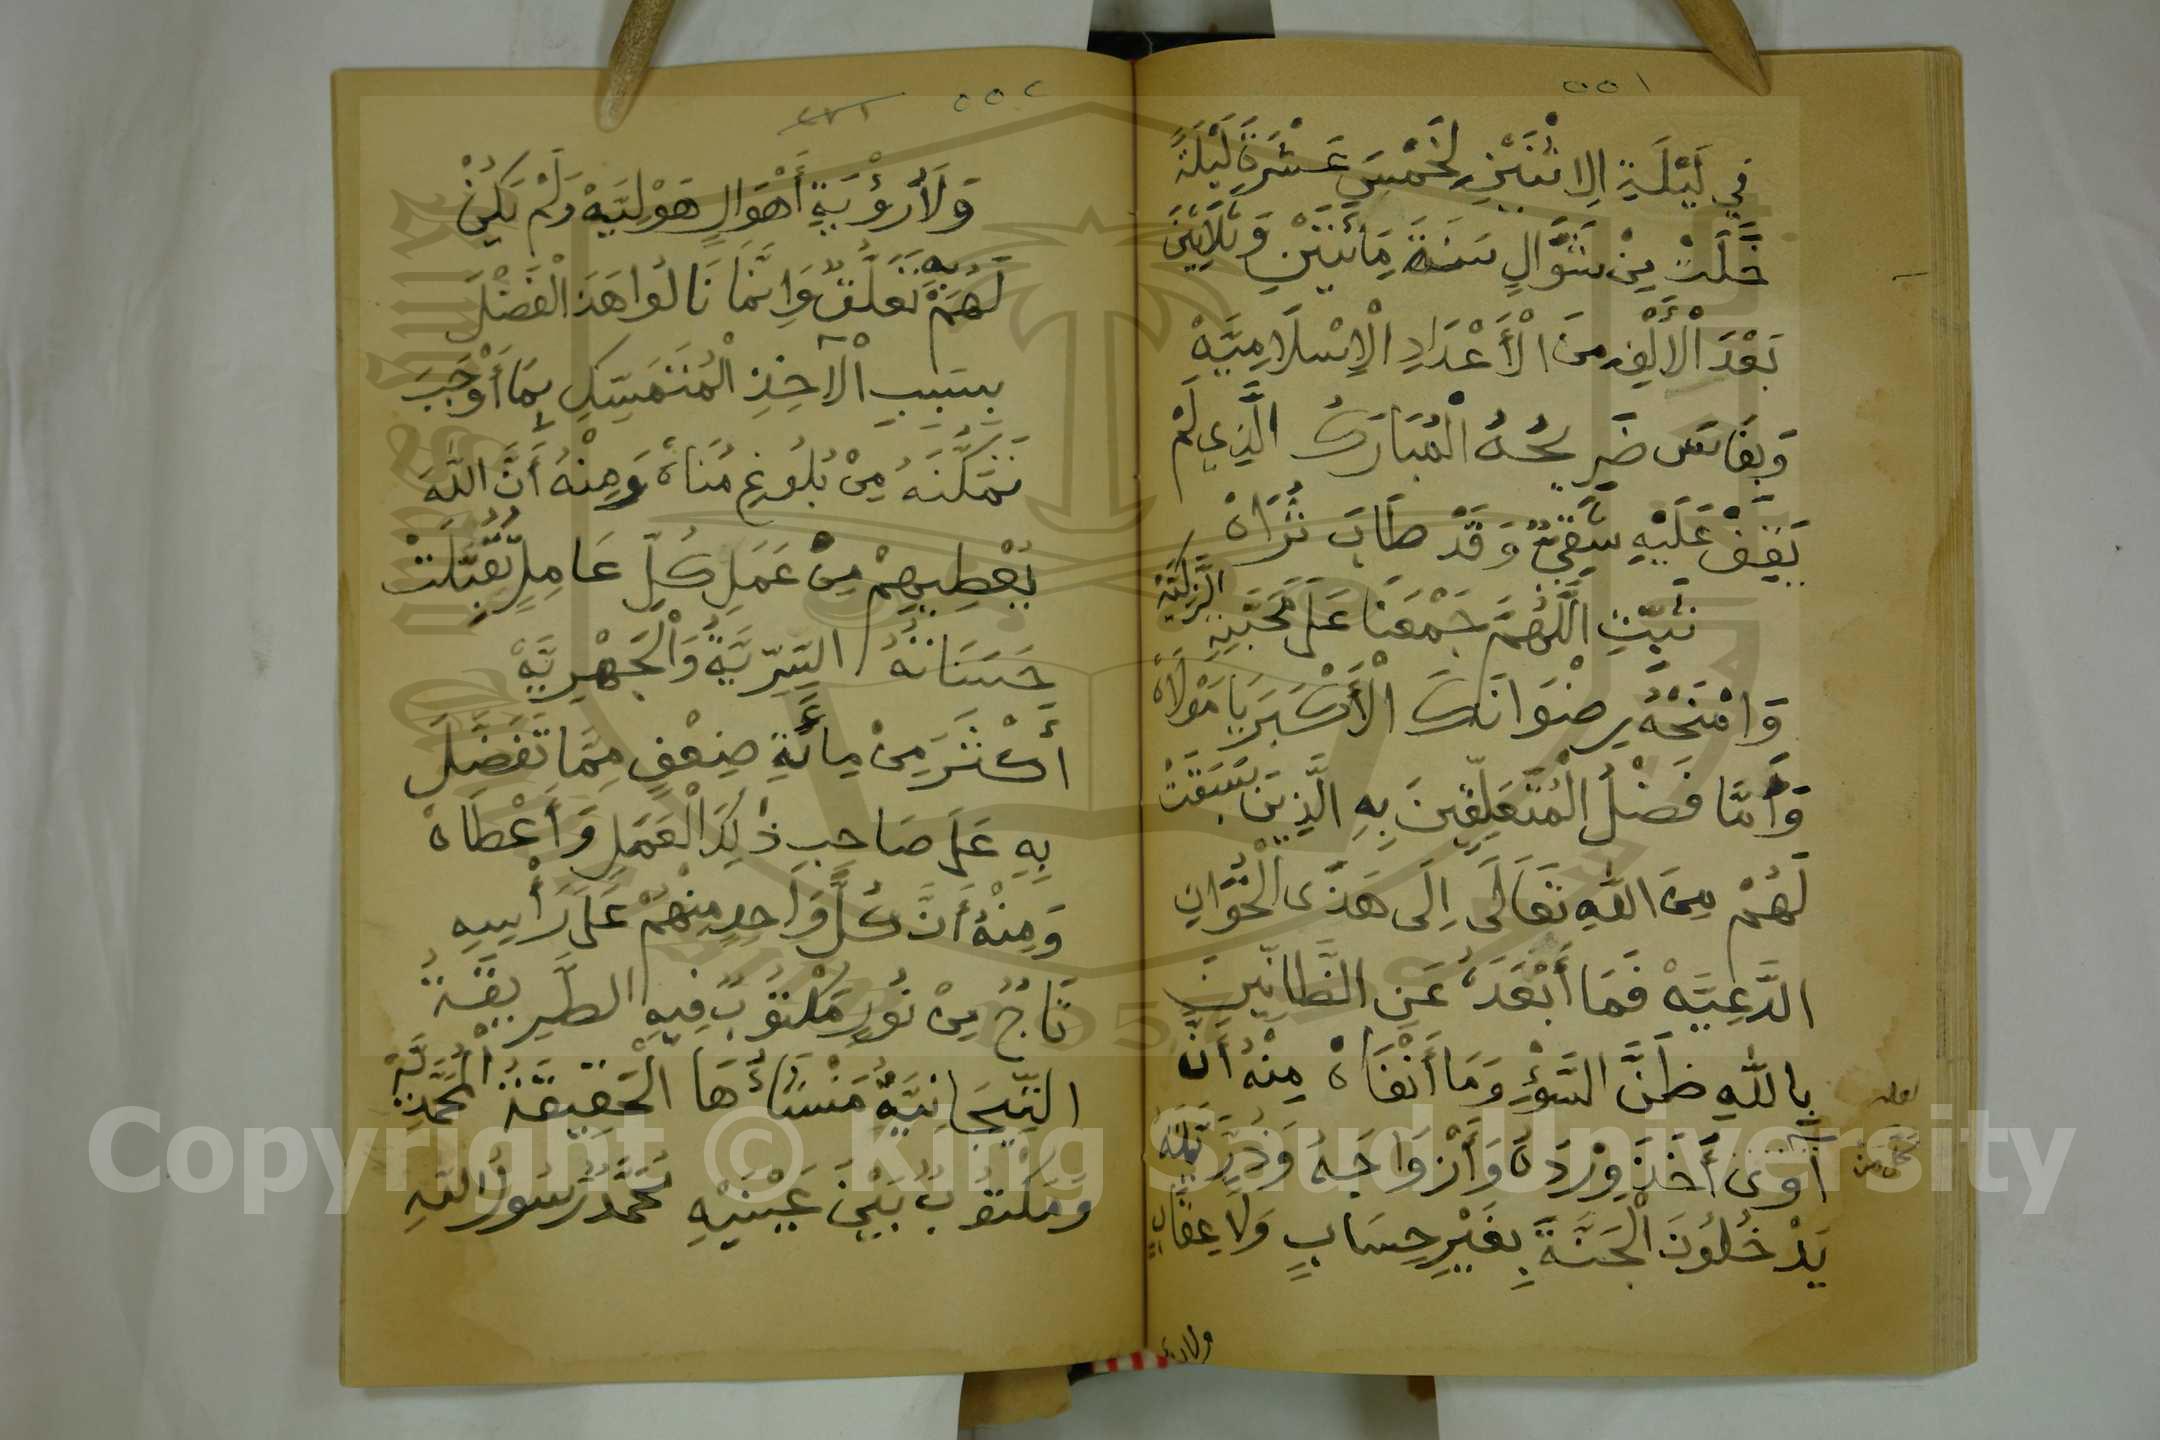 ٥٥١
فِي لَيْلَةِ الِاثْنَيْنِ لِخَمْسَ عَشْرَةَ لَيْلَةً
خَلَتْ مِنْ شَوَّالٍ سَنَةَ مِائَتَيْنِ وَثَلَاثِينَ
بَعْدَ الْأَلْفِ مِنَ الْأَعْدَادِ الْإِسْلَامِيَّهْ
وَبِفَاسَ ضَرِيحُهُ الْمُبَارَكُ الَّذِي لَمْ
يَقِفْ عَلَيْهِ شَقِيٌّ وَقَدْ طَابَ ثَرَاهْ
ثَبِّتِ اللَّهُمَّ جَمْعَنَا عَلَى مَحَبَّتِهِ الزَّكِيَّهْ
وَامْنَحْهُ رِضْوَانَكَ الْأَكْبَرَ يَا مَوْلَاهْ
وَأَمَّا فَضْلُ الْمُتَعَلِّقِينَ بِهِ الَّذِينَ سَبَقَتْ
لَهُمْ مِنَ اللهِ تَعَالَى اِلَى هَذَى الْخُوَّانِ
الدَّعِيَّهْ فَمَا أَبْعَدَهُ عَنِ الظَّانِّينَ
بِاللهِ ظَنَّ السَّوْءِ وَمَا أَنْفَاهْ مِنْهُ أَنَّ
آوَى أَخَذَ وِرْدَهُ وَأَزْوَاجَهُ وَذُرِّيَّتَهُ
يَدْخُلُونَ الْجَنَّةَ بِغَيْرِ حِسَابٍ وَلَا عِقَابٍ
لعله
كل من
ولارؤية
٥٥٢
وَلَا رُؤْيَةِ أَهْوَالٍ هَوْلِيَّهْ وَلَمْ يَكُنْ
لَهُمْ بِهِ تَعَلُّقٌ وَاِنَّمَا نَالُوا هَذَ الْفَضْلَ
بِسَبَبِ الْآخِذِ الْمُتَمَسِّكِ بِمَا أَوْجَبَ
تَمَكُّنَهُ مِنْ بُلُوغِ مُنَاهْ وَمِنْهُ أَنَّ اللهَ
يُعْطِيهِمْ مِنْ عَمَلِ كُلِّ عَامِلٍ تُقُبِّلَتْ
حَسَنَاتُهُ السِّرِّيَّةُ وَالْجَهْرِيَّهْ
أَكْثَرَ مِنْ مِائَةِ ضِعْفٍ مِمَّا تَفَضَّلَ
بِهِ عَلَى صَاحِبِ ذٰلِكَ الْعَمَلِ وَأَعْطَاهْ
وَمِنْهُ أَنَّ كُلَّ وَاحِدٍ مِنْهُمْ عَلَى رَأْسِهِ
تَاجٌ مِنْ نُورٍ مَكْتُوبٌ فِيهِ الطَّرِيقَةُ
التِّيجَانِيَّةُ مَنْشَاؤُهَا الْحَقِيقَةُ الْمُحَمَّدِيَّهْ
وَمَكْتُوبٌ بَيْنَ عَيْنَيْهِ مُحَمَّدٌ رَسُولُ اللهِ
Copyright © King Saud University